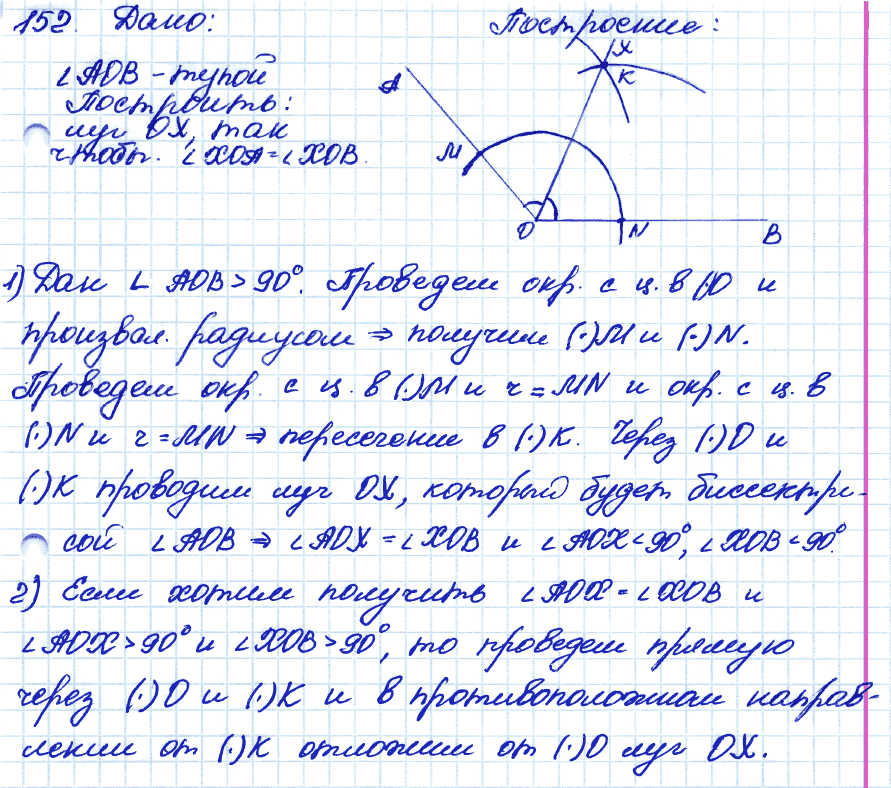 152. Дано: Построение:
∠AOB - тупой
Построить:
луч OX, так
чтобы. ∠XOA = ∠XOB.
X
K
A
M
O
N
B
1) Дан ∠ AOB > 90°. Проведем окр. с ц. в (·)O и
произвол. радиусом ⇒ получим (·)M и (·)N.
Проведем окр. с ц. в (·)M и r = MN и окр. с ц. в
(·)N и r = MN ⇒ пересечение в (·)K. Через (·)O и
(·)K проводим луч OX, который будет биссектри-
сой ∠AOB ⇒ ∠AOX = ∠XOB и ∠AOX < 90°, ∠XOB < 90°.
2) Если хотим получить ∠AOX = ∠XOB и
∠AOX > 90° и ∠XOB > 90°, то проведем прямую
через (·)O и (·)K и в противоположном направ-
лении от (·)K отложим от (·)O луч OX.